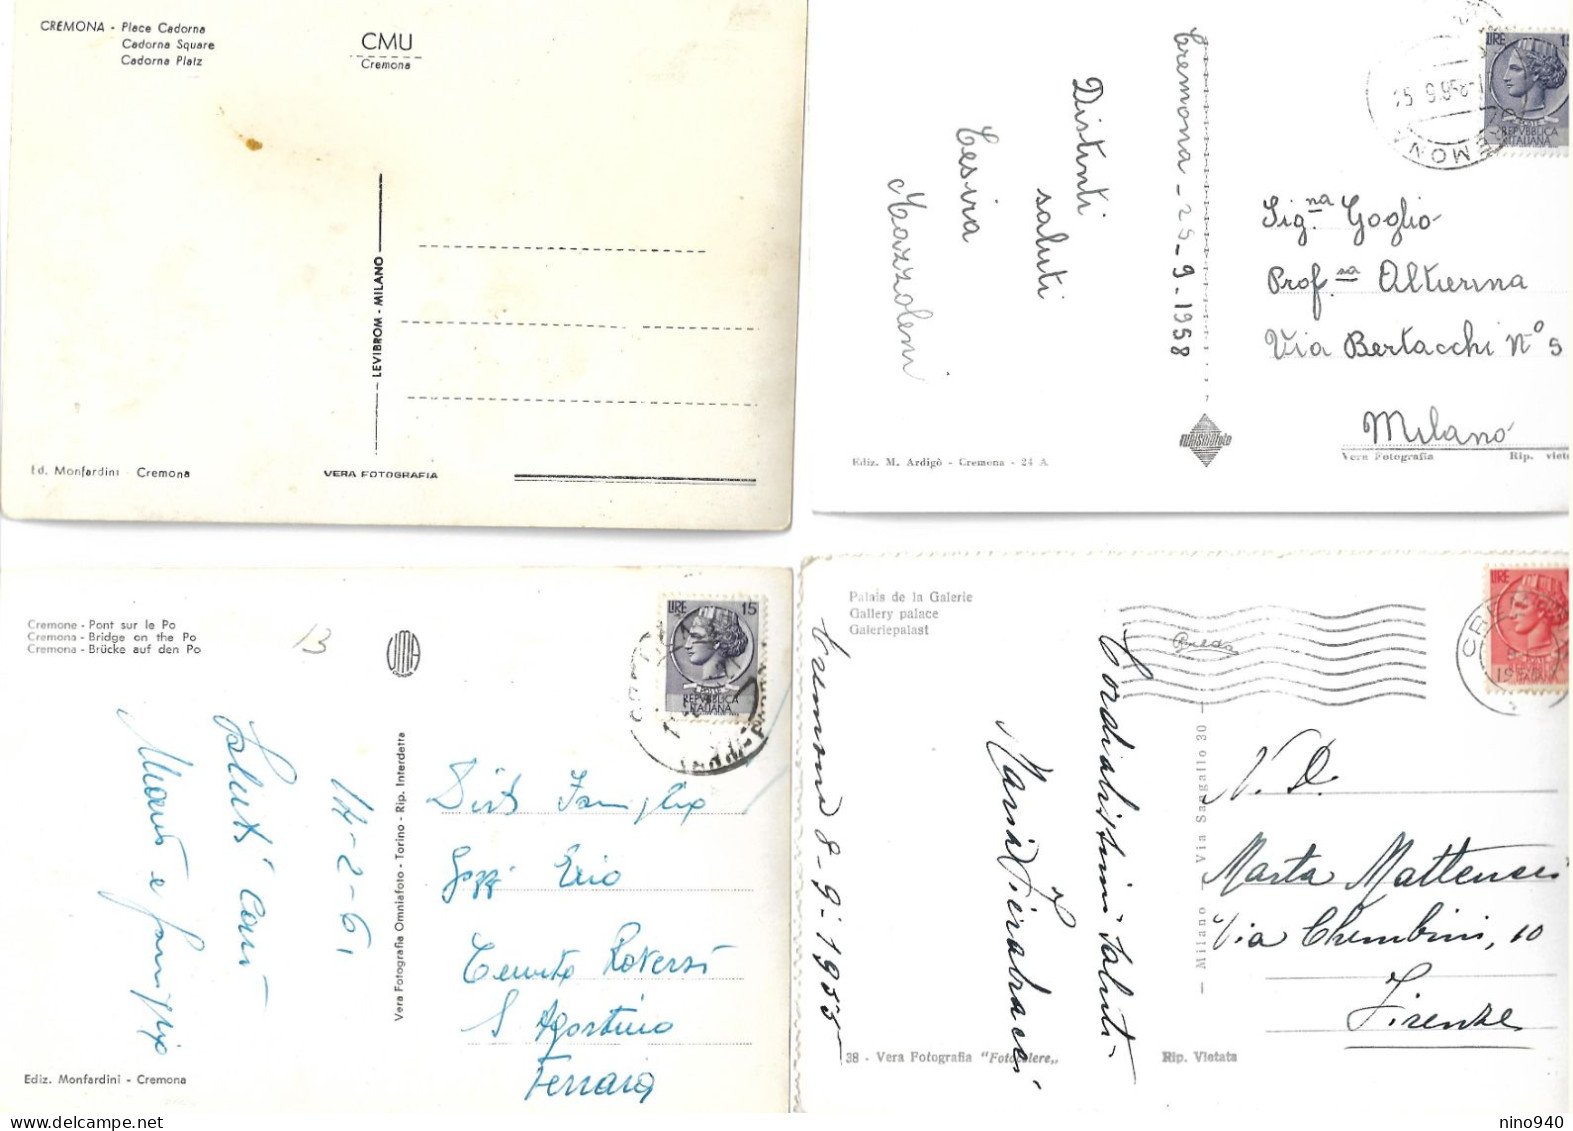 CREMONA - Place Cadorna
Cadorna Square
Cadorna Platz
CMU
Cremona
LEVIBROM - MILANO
Ed. Monfardini - Cremona
VERA FOTOGRAFIA
Cremona - 25-9-1958
Distinti
saluti
Cesira
Mazzoleni
LIRE
POSTE
REPVBBLICA
ITALIANA
Sig.na Goglio
Prof.sa Altierina
Via Bertacchi N° 5
Milano
Ediz. M. Ardigò - Cremona - 24 A
Vera Fotografia
Rip.
Cremone - Pont sur le Po
Cremona - Bridge on the Po
Cremona - Brücke auf den Po
13
LIRE 15
POSTE
REPVBBLICA
ITALIANA
Saluti cari
14-2-61
Vera Fotografia Omniafoto - Torino - Rip. Interdetta
Famiglia
Ezio
S Agostino
Ferrara
Ediz. Monfardini - Cremona
Palais de la Galerie
Gallery palace
Galeriepalast
LIRE
ITALIANA
Cremona 8-9-1955
Cordialissimi saluti
Maria Fierabracci
- Milano - Via Sangallo 30 -
N. D.
Marta Mattencei
Via Cherubini, 10
Firenze
38 - Vera Fotografia "Fotocelere„
Rip. Vietata
nino940